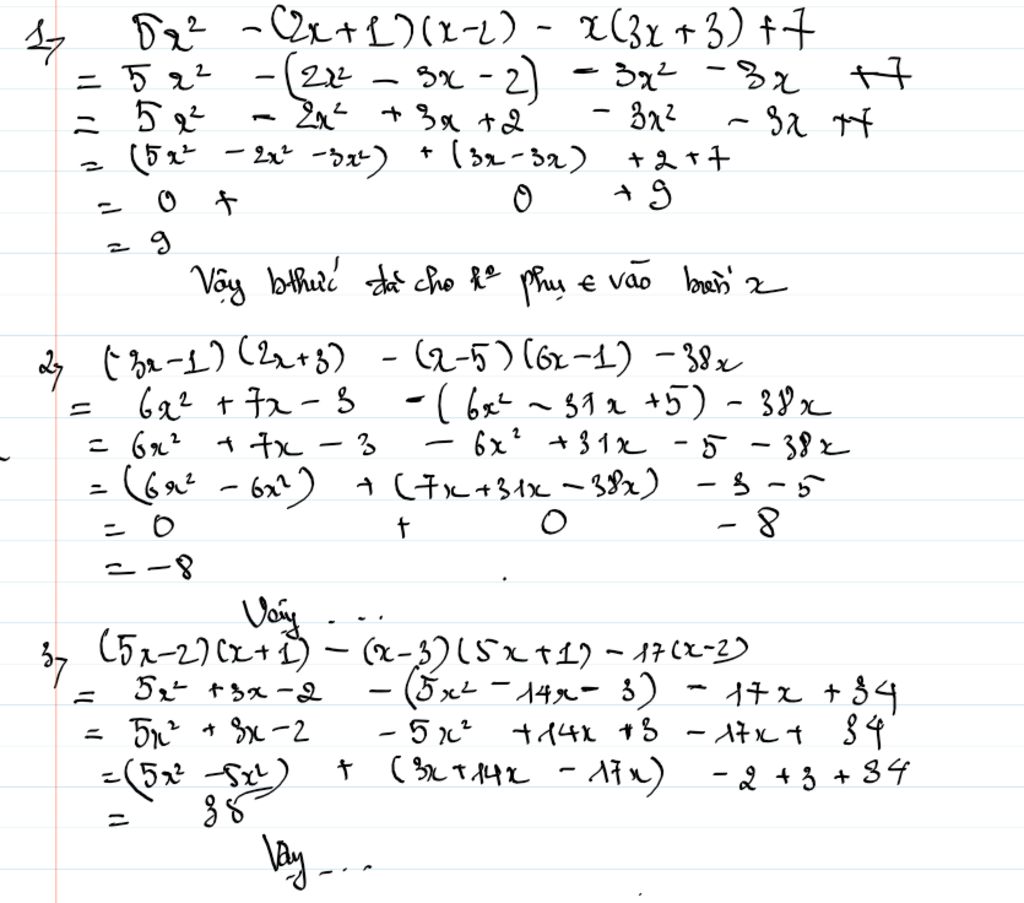 1, 5x² - (2x+1)(x-2) - x(3x+3) +7
= 5x² - (2x² - 3x - 2) - 3x² - 3x +7
= 5x² - 2x² + 3x + 2 - 3x² - 3x +7
= (5x² - 2x² - 3x²) + (3x - 3x) + 2 + 7
= 0 + 0 + 9
= 9
Vậy bthức đã cho k° phụ ∈ vào biến x
2, (3x-1)(2x+3) - (x-5)(6x-1) - 38x
= 6x² + 7x - 3 - (6x² - 31x + 5) - 38x
= 6x² + 7x - 3 - 6x² + 31x - 5 - 38x
= (6x² - 6x²) + (7x + 31x - 38x) - 3 - 5
= 0 + 0 - 8
= -8
Vậy ...
3, (5x-2)(x+1) - (x-3)(5x+1) - 17(x-2)
= 5x² + 3x - 2 - (5x² - 14x - 3) - 17x + 34
= 5x² + 3x - 2 - 5x² + 14x + 3 - 17x + 34
= (5x² - 5x²) + (3x + 14x - 17x) - 2 + 3 + 34
= 35
Vậy ...